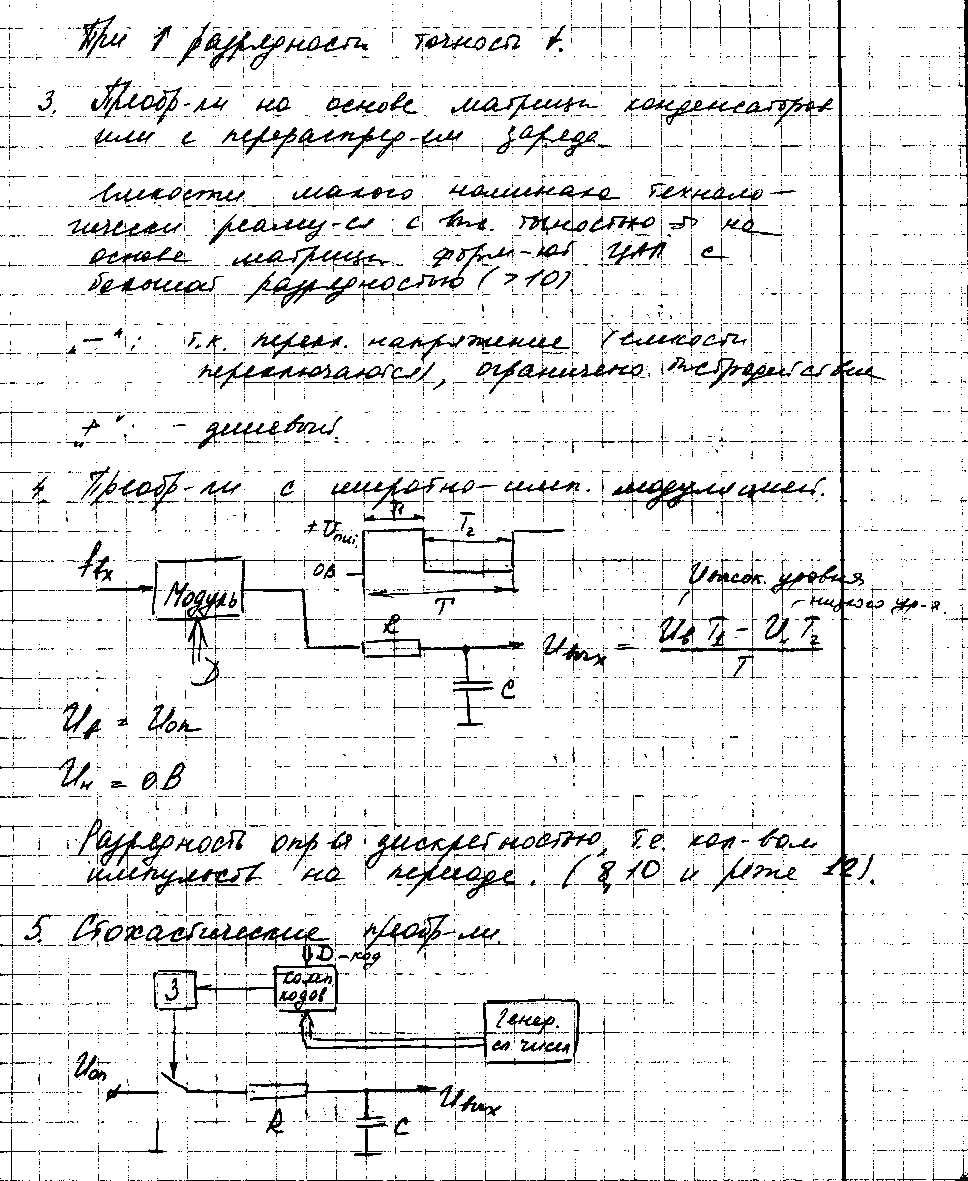 При ↑ разрядности точность ↓.
3. Преобр-ли на основе матрицы конденсаторов
или с перераспред-ем заряда
Емкости малого номинала техноло-
гически реализ-ся с выс. точностью ⇒ на
основе матрицы форм-ют ЦАП с
большой разрядностью (>10)
„—": т.к. перекл. напряжение (емкости
переключаются), ограничено быстродействие
„+": - дешевый.
4. Преобр-ли с широтно-имп. модуляцией.
T1
+Uпит.
T2
0В
T
fвх
Модуль
D
R
C
Uвысок. уровня
низкого ур-я
Uвых = (Uв T1 - U T2) / T
Uв = Uоп
Uн = 0В
Разрядность опр-ся дискретностью, т.е. кол-вом
импульсов на периоде. (8, 10 и реже 12).
5. Стохастические преобр-ли.
D - код
3
комп
кодов
Генер.
сл чисел
Uоп
R
C
Uвых